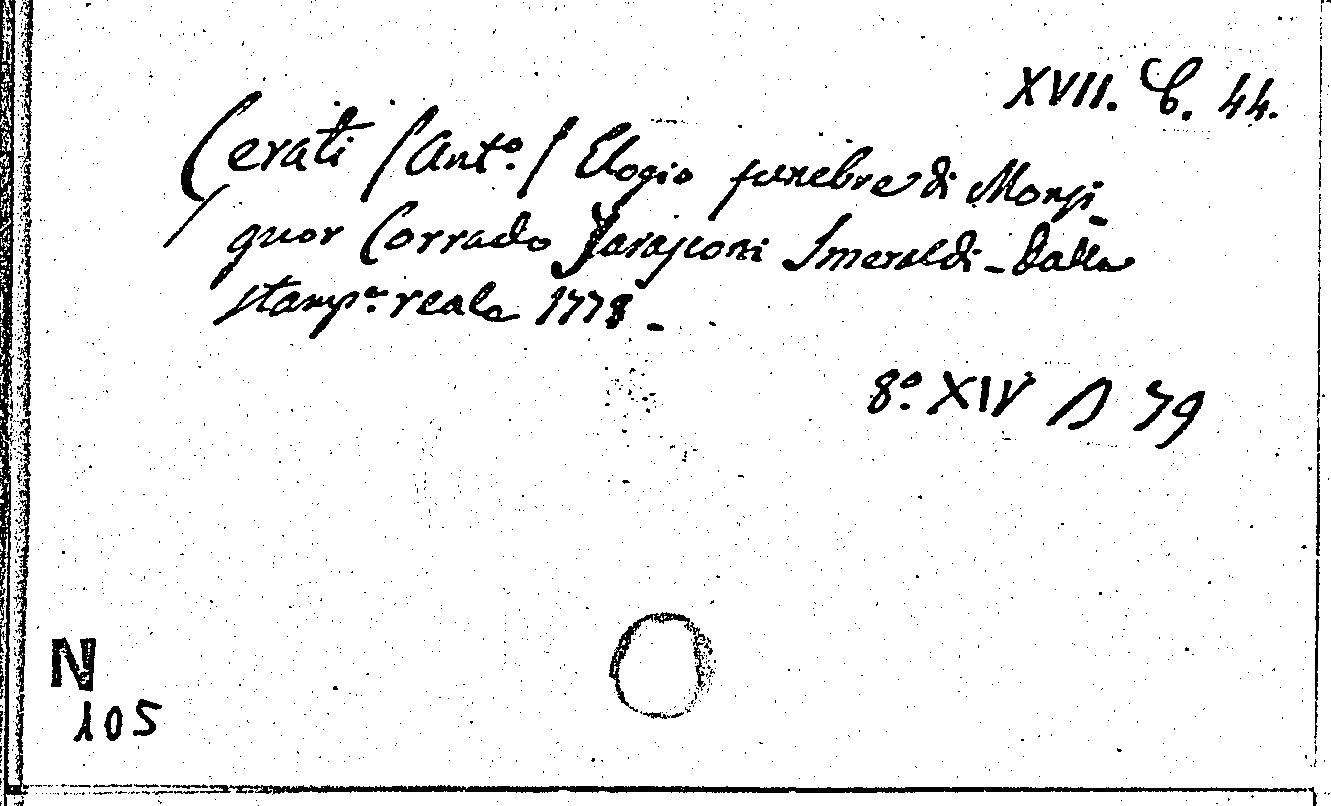 XVII. C. 44.
Cerati /Ant.º/ Elogio funebre di Monsi-
gnor Corrado Tarasconi Smeraldi - Dalla
stamp.ª reale 1778 -
8.º XIV D 79
N
105